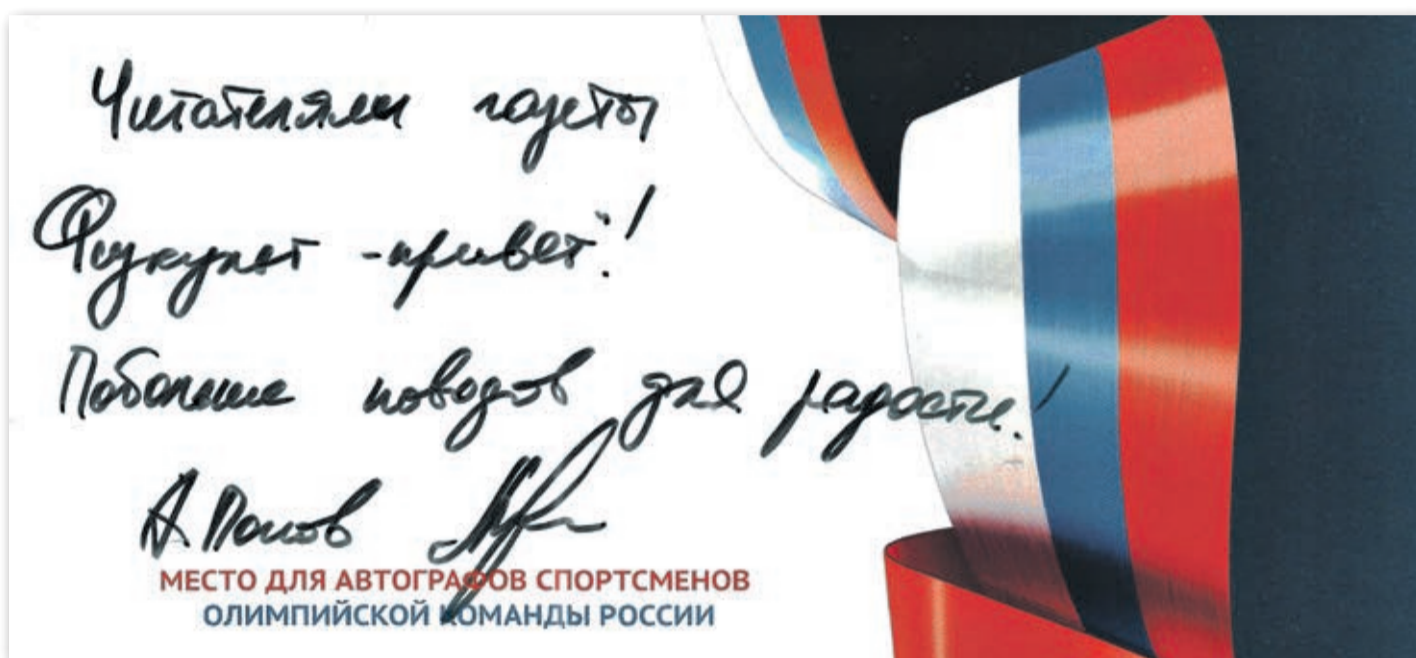 Читателям газеты
Физкульт - привет!
Побольше поводов для радости!
А. Попов
МЕСТО ДЛЯ АВТОГРАФОВ СПОРТСМЕНОВ
ОЛИМПИЙСКОЙ КОМАНДЫ РОССИИ